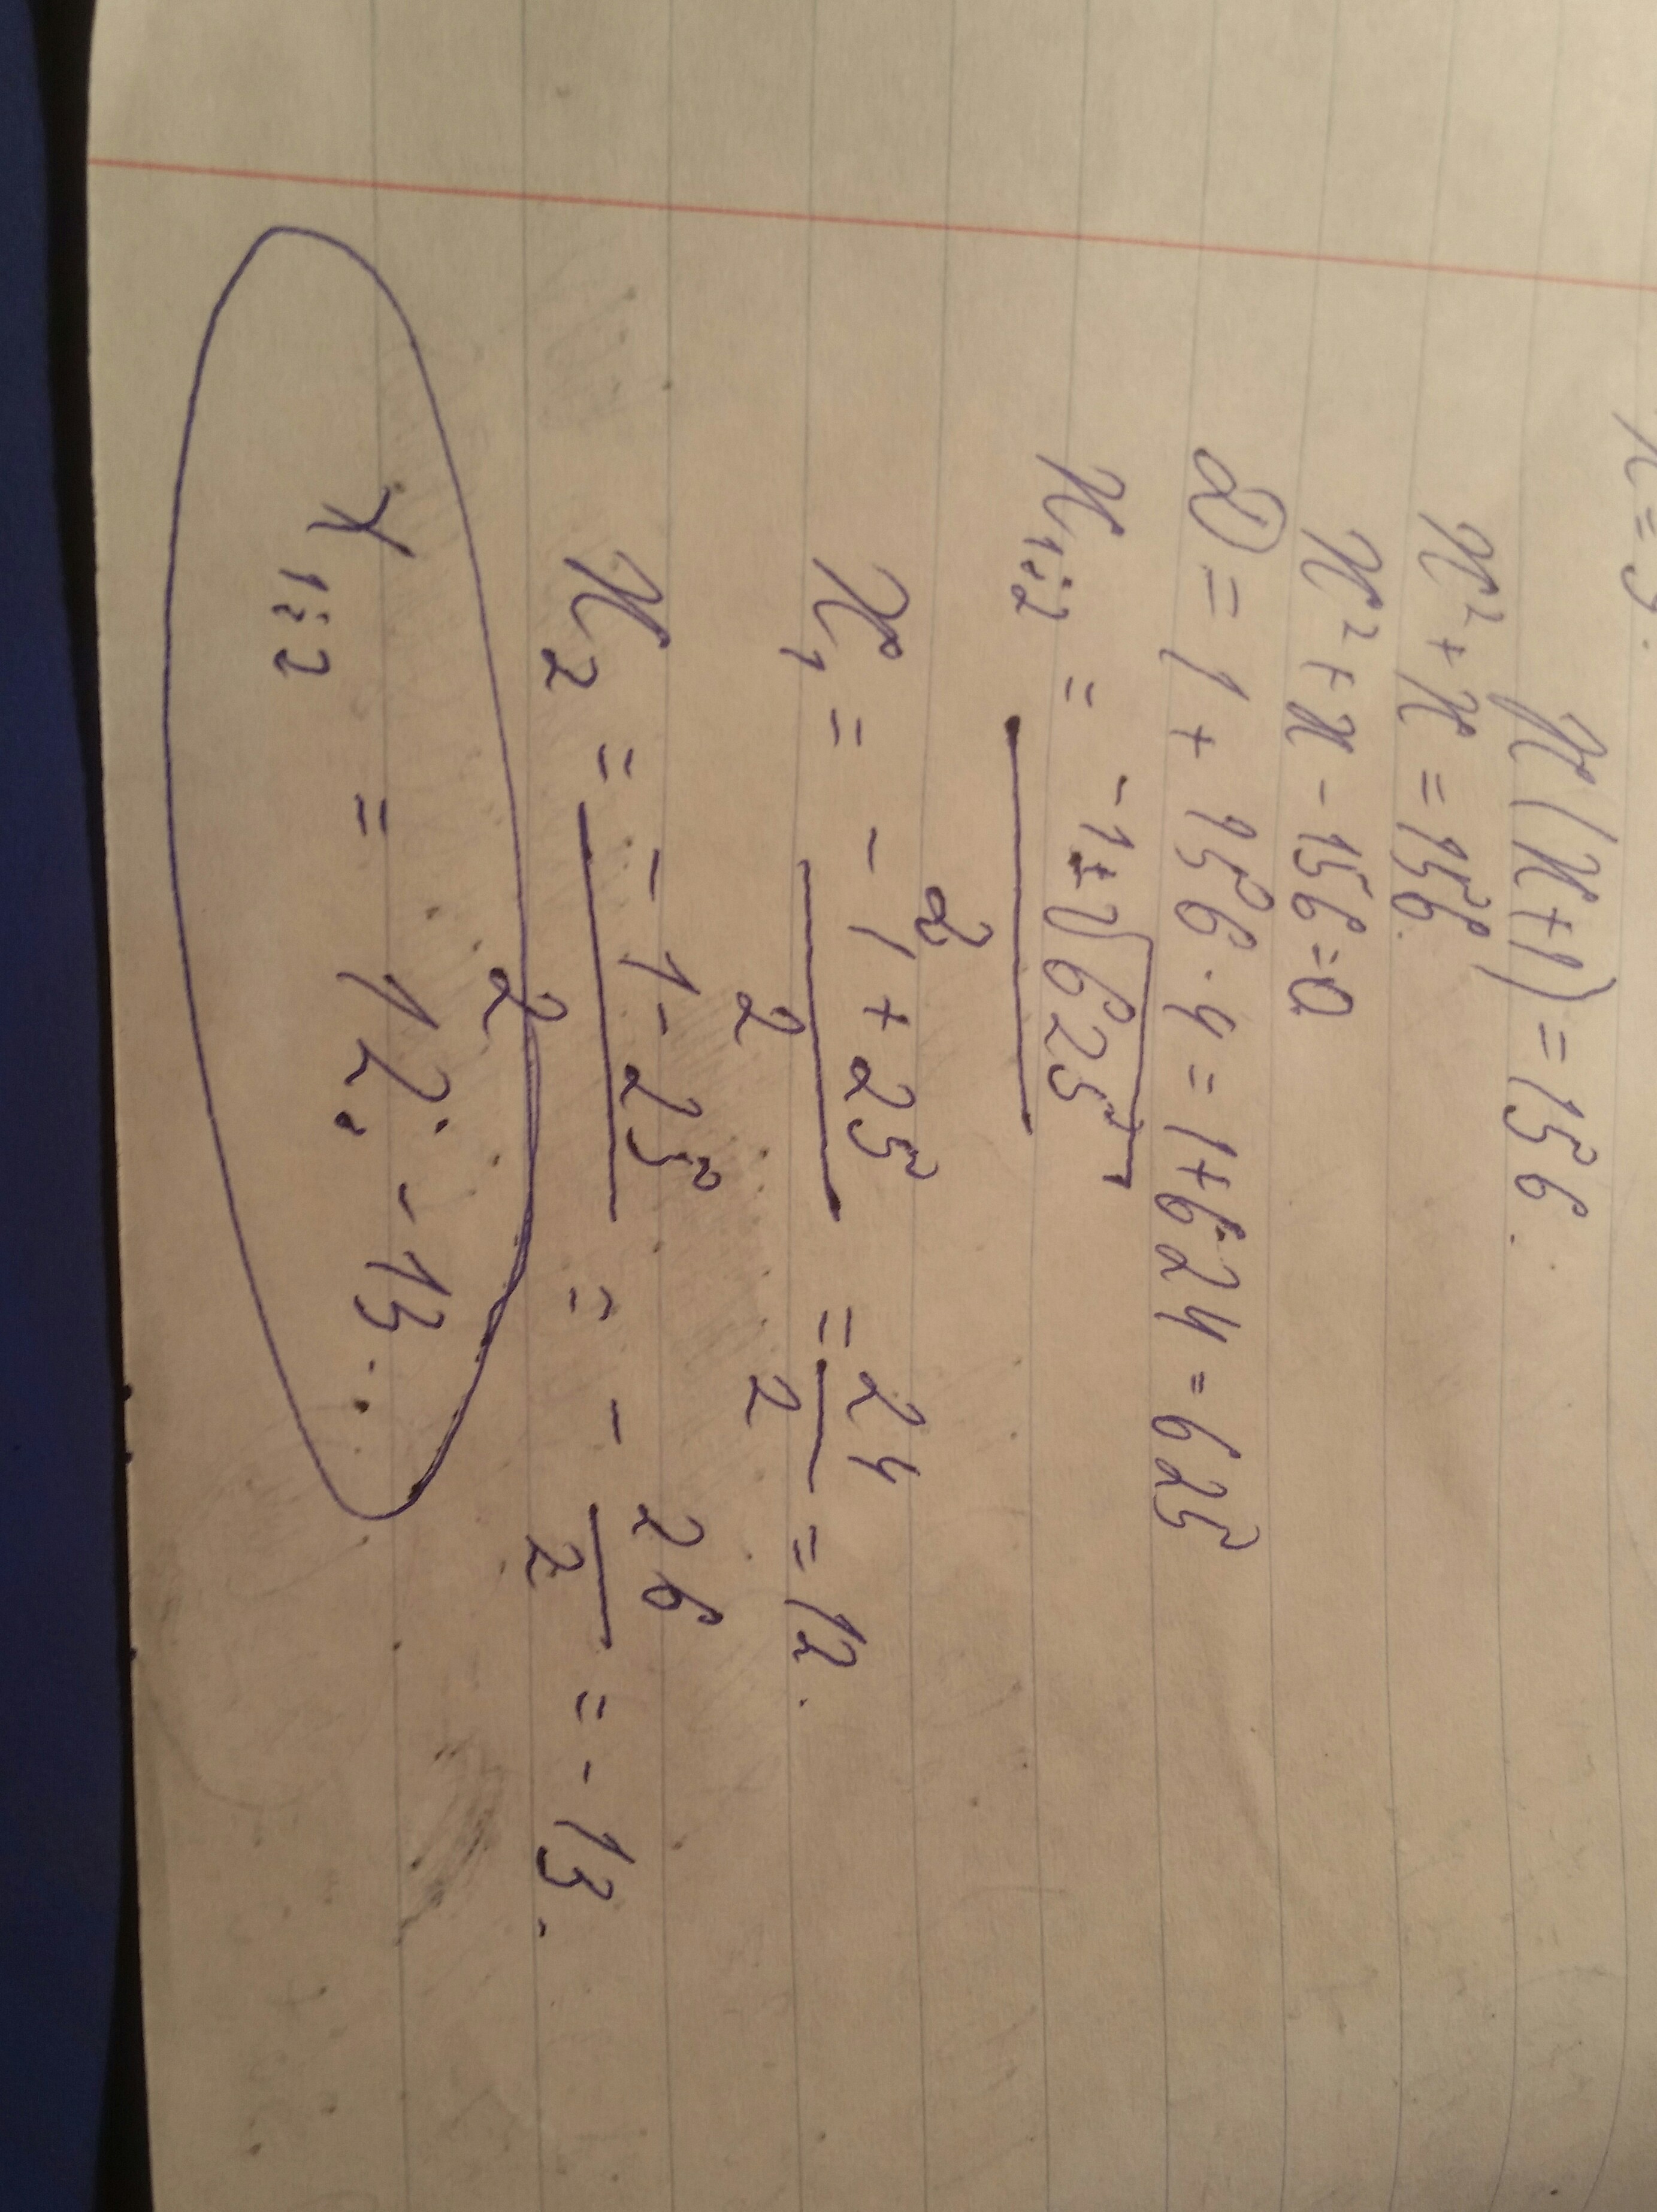 x(x+1)=156.
x²+x=156.
x²+x-156=0
D=1+156·4=1+624=625
x₁;₂ = -1±√625
2
x₁ = -1+25 = 24 = 12.
2 2
x₂ = -1-25 = - 26 = -13.
2 2
x₁;₂ = 12; -13.